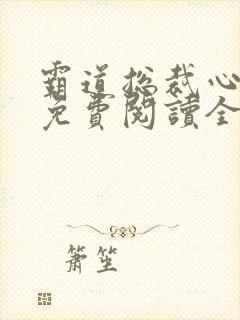 霸道总裁心
免費閱讀全
簫笙